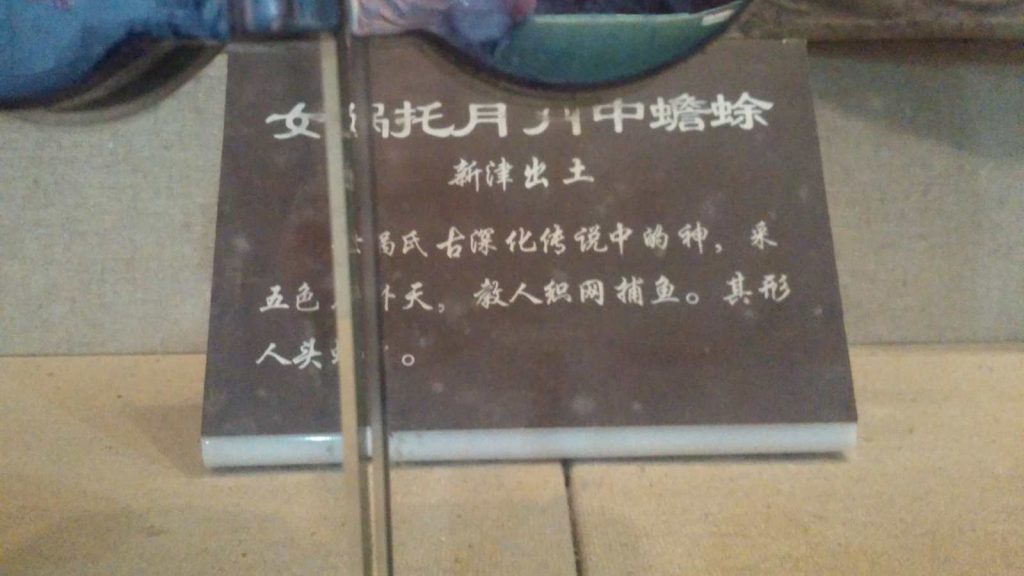 女娲托月 月中蟾蜍
新津出土
女娲氏古深化传说中的神，采
五色 补天，教人织网捕鱼。其形
人头 。